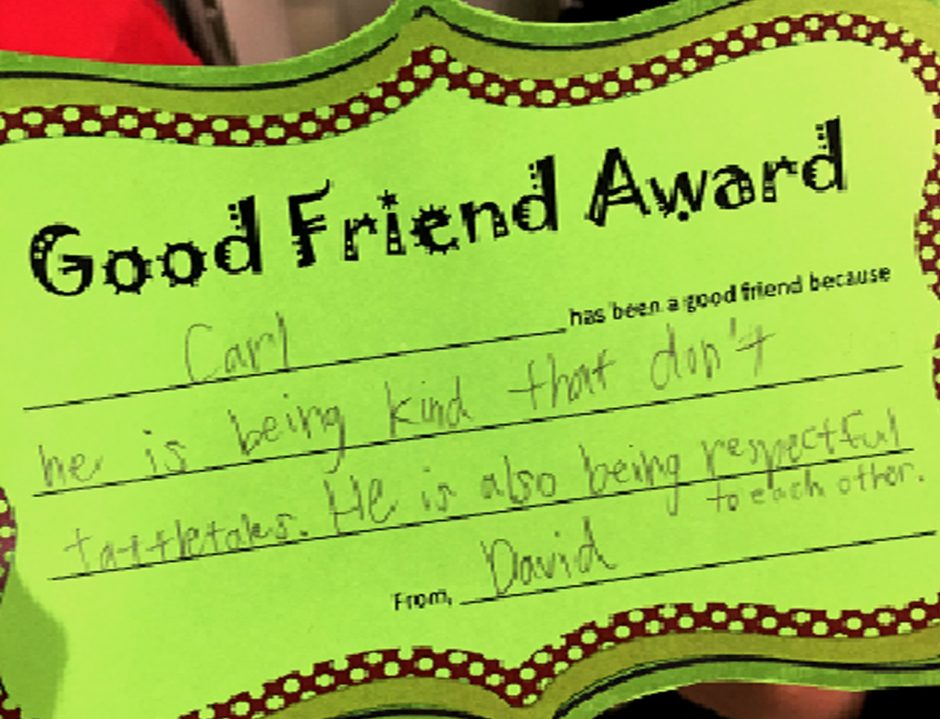 Good Friend Award
Carl has been a good friend because
he is being kind that don't
tattletales. He is also being respectful
to each other.
From, David